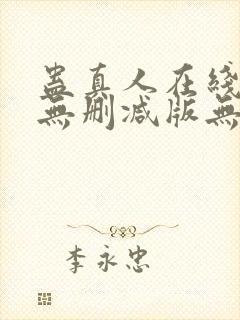 蛊真人在线
無删减版無
李永忠